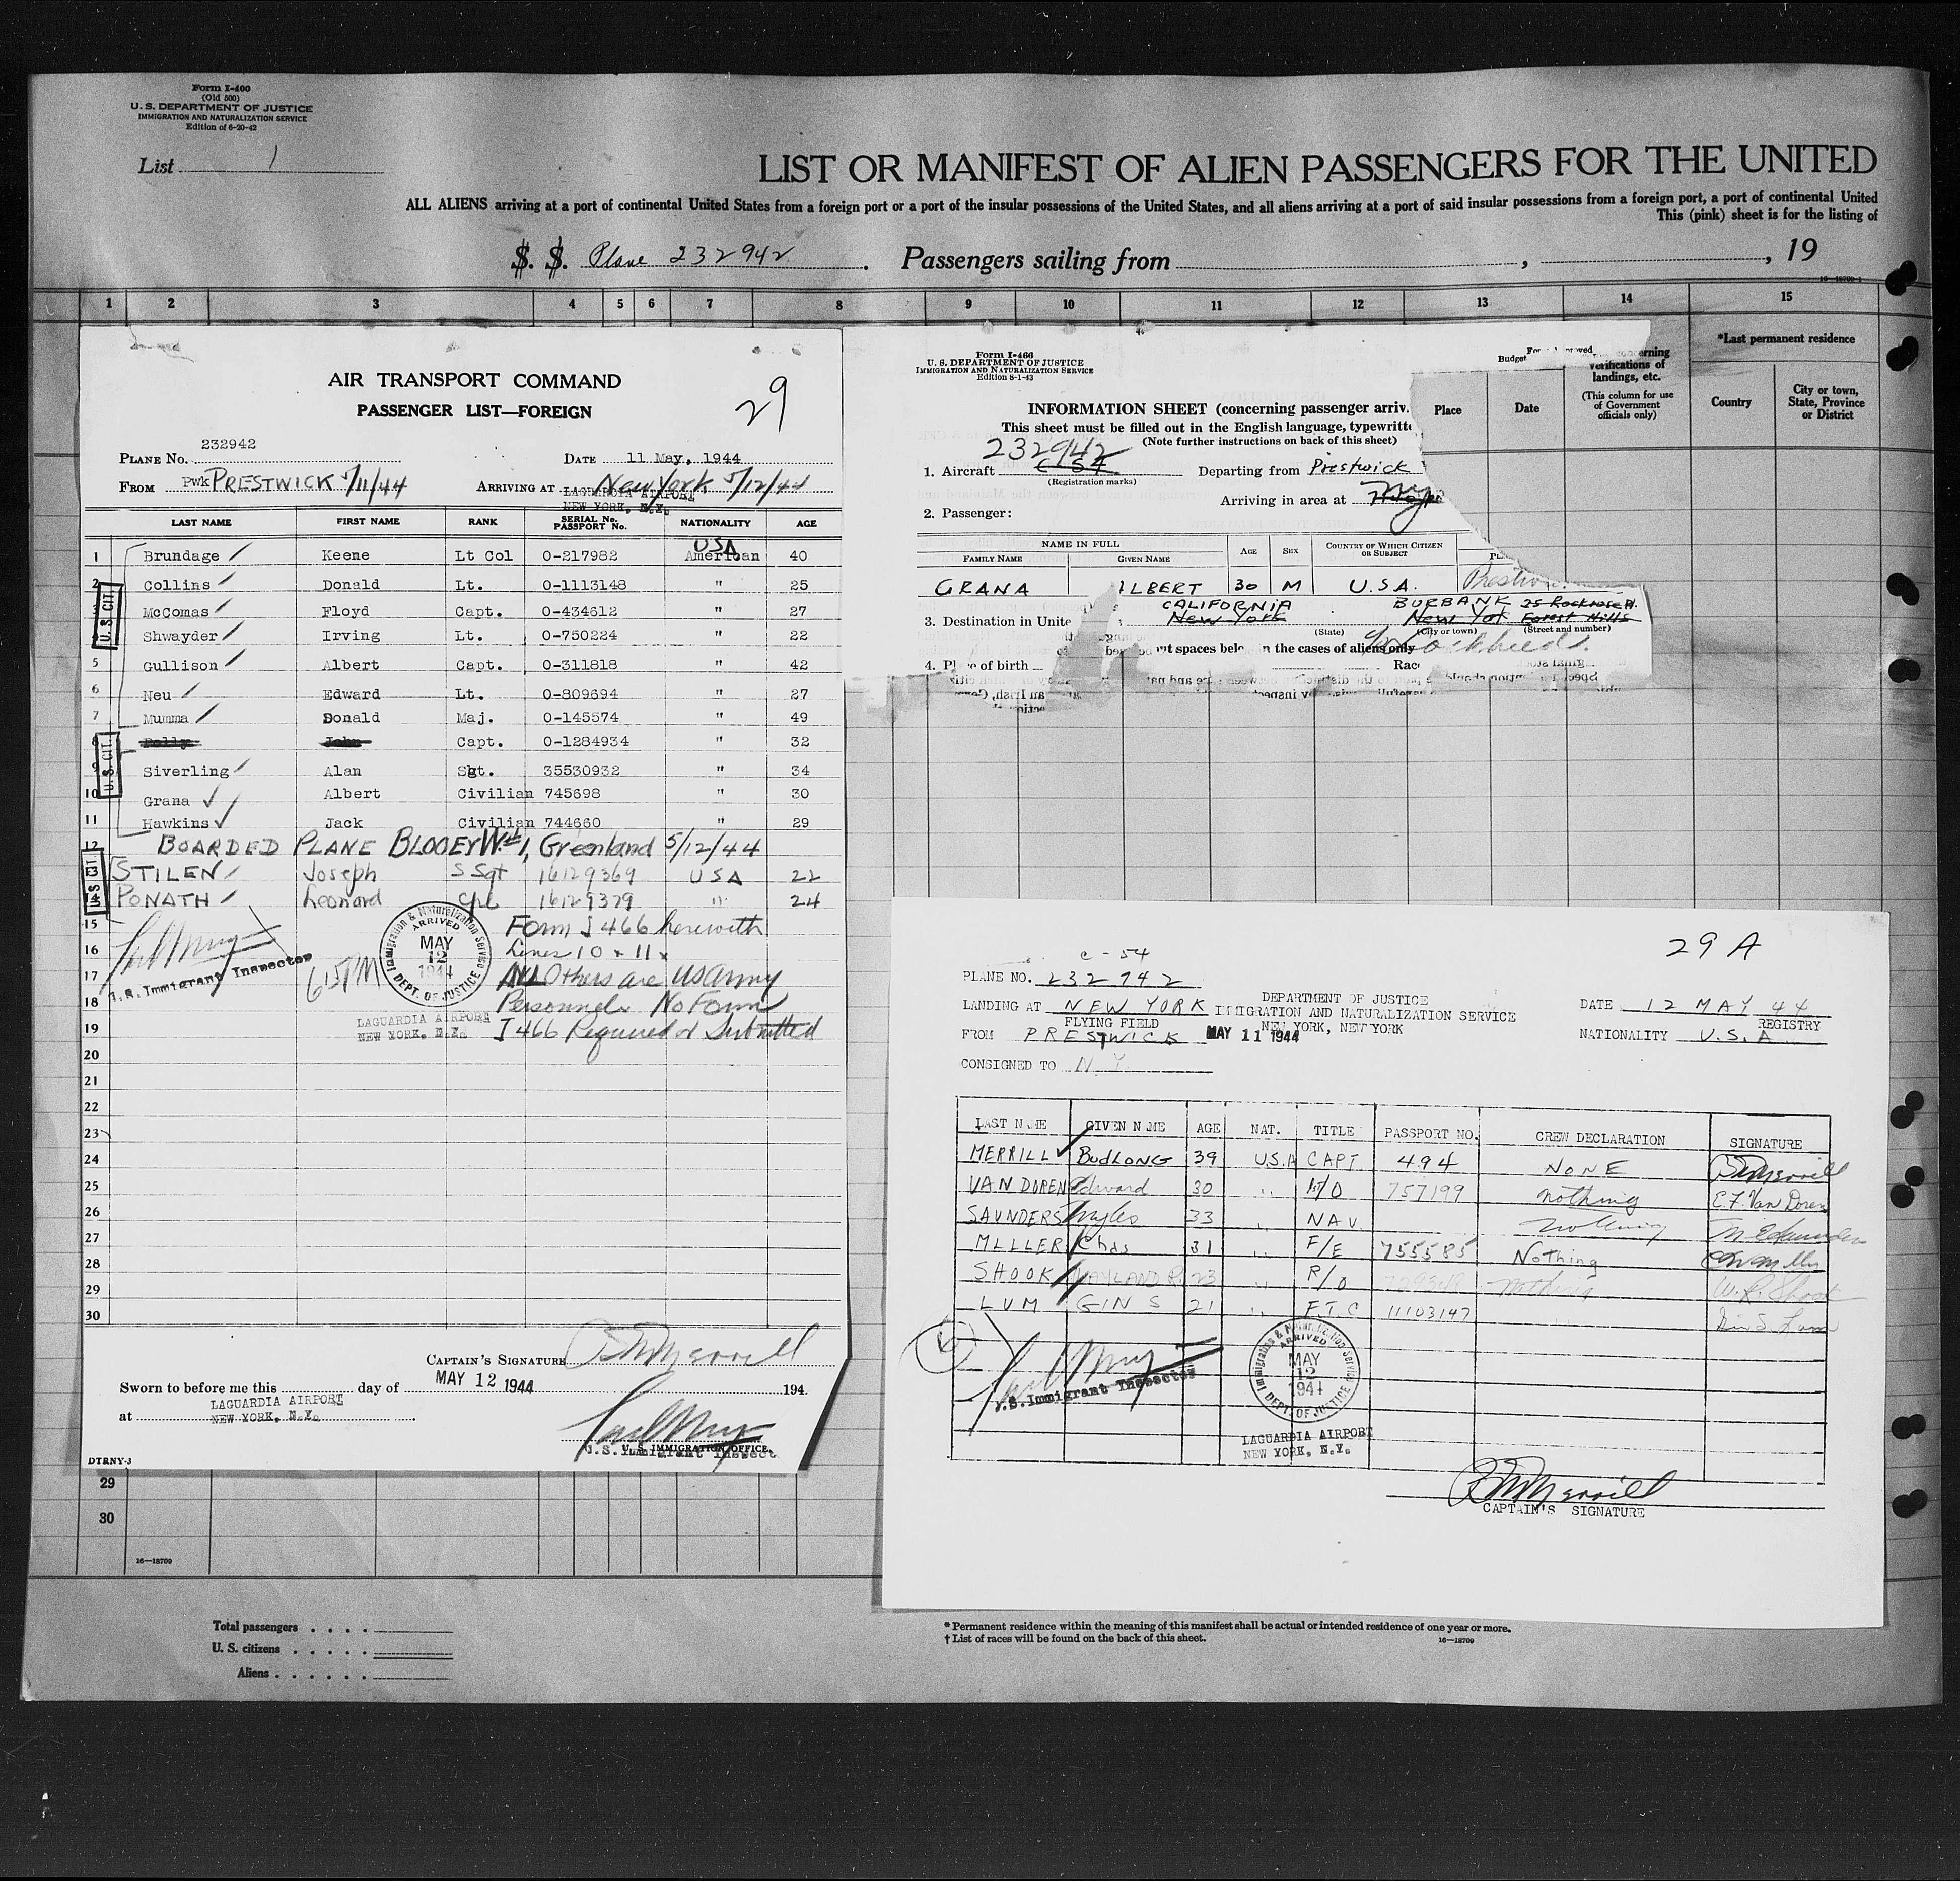 Form I-400
(Old 500)
U. S. DEPARTMENT OF JUSTICE
IMMIGRATION AND NATURALIZATION SERVICE
Edition of 6-20-42
List 1
LIST OR MANIFEST OF ALIEN PASSENGERS FOR THE UNITED
ALL ALIENS arriving at a port of continental United States from a foreign port or a port of the insular possessions of the United States, and all aliens arriving at a port of said insular possessions from a foreign port, a port of continental United
This (pink) sheet is for the listing of
S. S. Plane 232942. Passengers sailing from , , 19
16—18709-1
1 2 3 4 5 6 7 8 9 10 11 12 13 14 15
AIR TRANSPORT COMMAND
PASSENGER LIST—FOREIGN
29
PLANE No. 232942 DATE 11 May, 1944
FROM Pwk PRESTWICK 5/11/44 ARRIVING AT New York 5/12/44
LAGUARDIA AIRPORT
NEW YORK, N.Y.
LAST NAME FIRST NAME RANK SERIAL No. PASSPORT No. NATIONALITY AGE
USA
1 Brundage Keene Lt Col 0-217982 American 40
2 Collins Donald Lt. 0-1113148 " 25
3 McComas Floyd Capt. 0-434612 " 27
Shwayder Irving Lt. 0-750224 " 22
5 Gullison Albert Capt. 0-311818 " 42
6 Neu Edward Lt. 0-809694 " 27
7 Mumma Donald Maj. 0-145574 " 49
8 John Capt. 0-1284934 " 32
9 Siverling Alan Sgt. 35530932 " 34
10 Grana Albert Civilian 745698 " 30
11 Hawkins Jack Civilian 744660 " 29
U.S. CIT.
U.S. CIT.
12 BOARDED PLANE BLOOEY W#1, Greenland 5/12/44
U S CIT.
STILEN Joseph S Sgt 16129369 USA 22
14 PONATH Leonard Cpl 16129379 " 24
15 Form I 466 herewith
16 Lines 10 + 11
17 All Others are US Army
18 Personnel. No Form
19 I 466 Required or Submitted
U.S. Immigrant Inspector
615 PM
Immigration & Naturalization Service
ARRIVED
MAY
12
1944
DEPT. OF JUSTICE
LAGUARDIA AIRPORT
NEW YORK, N.Y.
20
21
22
23
24
25
26
27
28
29
30
CAPTAIN'S SIGNATURE BM Merrill
MAY 12 1944
Sworn to before me this day of 194
LAGUARDIA AIRPORT
at NEW YORK, N.Y.
U. S. IMMIGRATION OFFICE.
U.S. Immigrant Inspect
DTRNY-3
29
30
16—18709
Total passengers
U. S. citizens
Aliens
Form I-466
U. S. DEPARTMENT OF JUSTICE
IMMIGRATION AND NATURALIZATION SERVICE
Edition 8-1-43
Budget
INFORMATION SHEET (concerning passenger arriv
This sheet must be filled out in the English language, typewritte
(Note further instructions on back of this sheet)
232942
1. Aircraft C 54 Departing from Prestwick
(Registration marks)
Arriving in area at
2. Passenger:
NAME IN FULL AGE SEX COUNTRY OF WHICH CITIZEN OR SUBJECT
FAMILY NAME GIVEN NAME
GRANA ILBERT 30 M U.S.A.
CALIFORNIA BURBANK 25 Rockrose Pl.
3. Destination in Unite New York New York Forest Hills
(State) (City or town) (Street and number)
Lockheed.
nt spaces belo n the cases of aliens only
4. Pl e of birth Race
Place Date
verifications of
landings, etc.
(This column for use
of Government
officials only)
*Last permanent residence
Country
City or town,
State, Province
or District
29 A
C-54
PLANE NO. 232942
LANDING AT NEW YORK
DEPARTMENT OF JUSTICE
IMMIGRATION AND NATURALIZATION SERVICE
NEW YORK, NEW YORK
DATE 12 MAY 44
FLYING FIELD
REGISTRY
FROM PRESTWICK MAY 11 1944 NATIONALITY U.S.A
CONSIGNED TO N.Y.
LAST NAME GIVEN NAME AGE NAT. TITLE PASSPORT NO. CREW DECLARATION SIGNATURE
MERRILL BUDLONG 39 U.S.A CAPT 494 NONE BM Merrill
VAN DOREN Edward 30 " F/O 757199 nothing E.F. Van Doren
SAUNDERS Myles 33 " NAV nothing M E Saunders
MILLER Chas 31 " F/E 755585 Nothing
SHOOK WAYLAND R 23 " R/O nothing W.R. Shook
LUM GIN S 21 " F.T.C 11103147 Gin S. Lum
6
U.S. Immigrant Inspector
Immigration & Naturalization Service
ARRIVED
MAY
12
1944
DEPT. OF JUSTICE
LAGUARDIA AIRPORT
NEW YORK, N.Y.
BM Merrill
CAPTAIN'S SIGNATURE
* Permanent residence within the meaning of this manifest shall be actual or intended residence of one year or more.
† List of races will be found on the back of this sheet.
16—18709